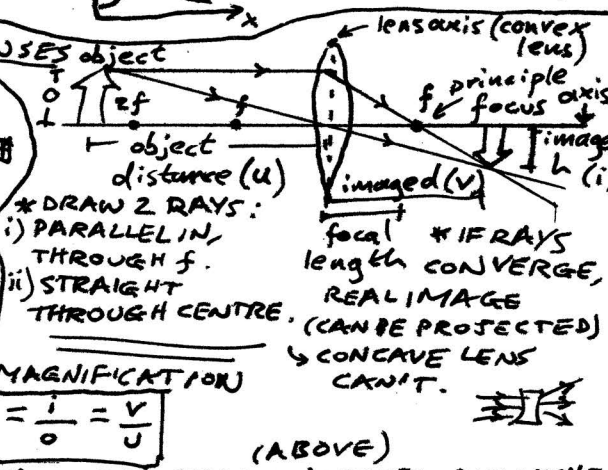 x
lens axis (convex
lens)
USES object
principle
focus axis
2f f f
o
object
distance (u)
image
h (i
image d (v)
focal
length
* DRAW 2 RAYS:
i) PARALLEL IN,
THROUGH f.
ii) STRAIGHT
THROUGH CENTRE.
* IF RAYS
CONVERGE,
REAL IMAGE
(CAN BE PROJECTED)
↳ CONCAVE LENS
CAN'T.
MAGNIFICATION
= i/o = v/u
(ABOVE)